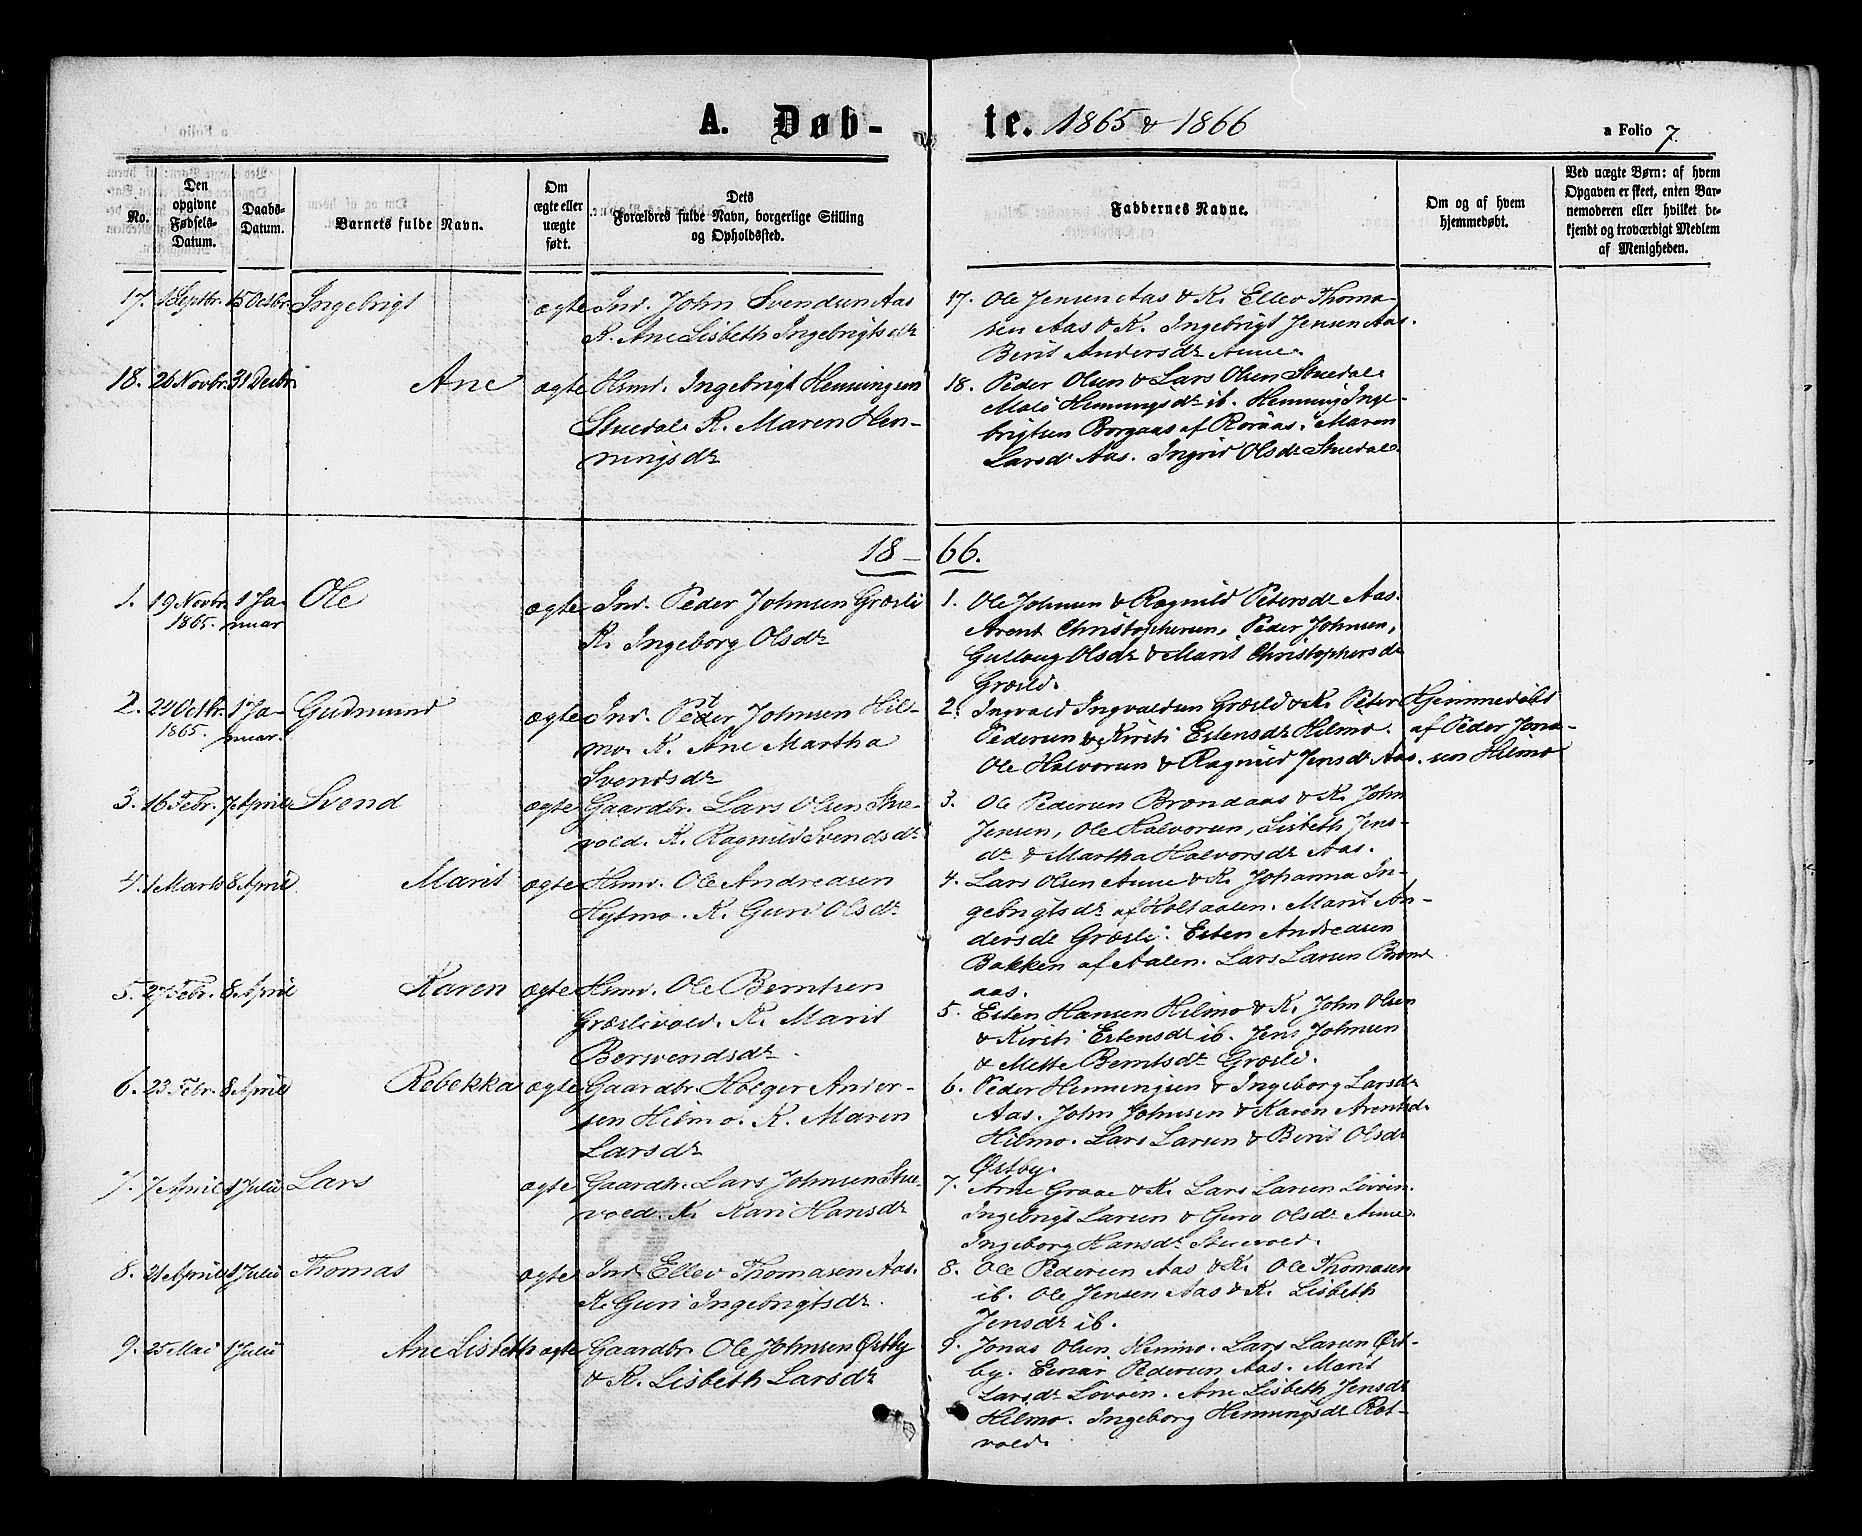 A. Døb-
te. 1865 & 1866
a Folio 7.
No.
Den
opgivne
Fødsels-
Datum.
Daabs-
Datum.
Barnets fulde Navn.
Om
ægte eller
uægte
født.
Dets
Forældres fulde Navn, borgerlige Stilling
og Opholdssted.
Faddernes Navne.
Om og af hvem
hjemmedøbt.
Ved uægte Børn: af hvem
Opgaven er skeet, enten Bar-
nemoderen eller hvilket be-
kjendt og troværdigt Medlem
af Menigheden.
17. 1 Septbr. 15 Octbr. Ingebrigt ægte Ind. John Svendsen Aas
K. Ane Lisbeth Ingebrigtsdr
17. Ole Jensen Aas & K. Ellev Thoma-
sen Aas & K. Ingebrigt Jensen Aas.
Berit Andersdr Aune.
18. 26 Novbr. 31 Decbr. Ane ægte Hsmd. Ingebrigt Henningsen
Stuedal. K. Maren Hen-
ningsdr
18. Peder Olsen & Lars Olsen Stuedal.
Malo Henningsdr ib. Henning Inge-
brigtsen Borgaas af Røraas. Maren
Larsdr Aas. Ingrid Olsdr Stuedal.
18-66.
1. 19 Novbr. 1 Ja- Ole ægte Ind. Peder Johnsen Græsli
1865. nuar
K. Ingeborg Olsdr
1. Ole Johnsen & Ragnild Petersdr Aas.
Arent Christophersen, Peder Johnsen,
Gullaug Olsdr & Marit Christophersdr
Græsli.
2. 24 Octbr. 1 Ja- Gudmund ægte Ind. Peder Johnsen Hil-
1865. nuar.
mo. K. Ane Martha
Svendsdr
2. Ingvald Ingvaldsen Græsli & K. Peter Hjemmedøbt
Pedersen & Kirsti Estensdr Hilmo. af Peder Jona-
Ole Halvorsen & Ragnild Jensdr Aas. sen Hilmo
3. 16 Febr. 7 April Svend ægte Gaardbr. Lars Olsen Stue-
vold. K. Ragnild Svendsdr
3. Ole Pedersen Brøndaas & K. John
Jensen, Ole Halvorsen, Lisbeth Jens-
dr & Martha Halvorsdr Aas.
4. 1 Marts 8 April Marit ægte Hsmd. Ole Andreasen
Hytmo. K. Guri Olsdr
4. Lars Olsen Aune & K. Johanna In-
gebrigtsdr af Holtaalen. Marit An-
dersdr Græsli. Esten Andreasen
Bakken af Aalen. Lars Larsen Brønd-
aas.
5. 27 Febr. 8 April Karen ægte Hsmd. Ole Berntsen
Græslivold. K. Marit
Bersvendsdr.
5. Esten Hansen Hilmo & K. John Olsen
& Kirsti Estensdr ib. Jens Johnsen
& Mette Berntsdr Græsli.
6. 23 Febr. 8 April Rebekka ægte Gaardbr. Holger Ander-
sen Hilmo. K. Maren
Larsdr
6. Peder Henningsen & Ingeborg Larsdr
Aas. John Johnsen & Karen Arentsd.
Hilmo. Lars Larsen & Berit Olsdr
Østby.
7. 7 April 1 Juli Lars ægte Gaardbr. Lars Johnsen Stue-
vold. K. Kari Hansdr
7. Arne Graae & K. Lars Larsen Løvøien.
Ingebrigt Larsen & Guro Olsdr Aune.
Ingeborg Hansdr Stuevold.
8. 21 April 1 Juli Thomas ægte Ind. Ellev Thomasen Aas.
K. Guri Ingebrigtsdr.
8. Ole Pedersen Aas & K. Ole Thomasen
ib. Ole Jensen Aas & K. Lisbeth
Jensdr ib.
9. 25 Mai 1 Juli Ane Lisbeth ægte Gaardbr. Ole Johnsen Østby
& K. Lisbeth Larsdr
9. Jonas Olsen Hilmo. Lars Larsen Øst-
by. Einar Pedersen Aas. Marit
Larsdr Løvøien. Ane Lisbeth Jensdr
Hilmo. Ingeborg Henningsdr Rot-
vold.